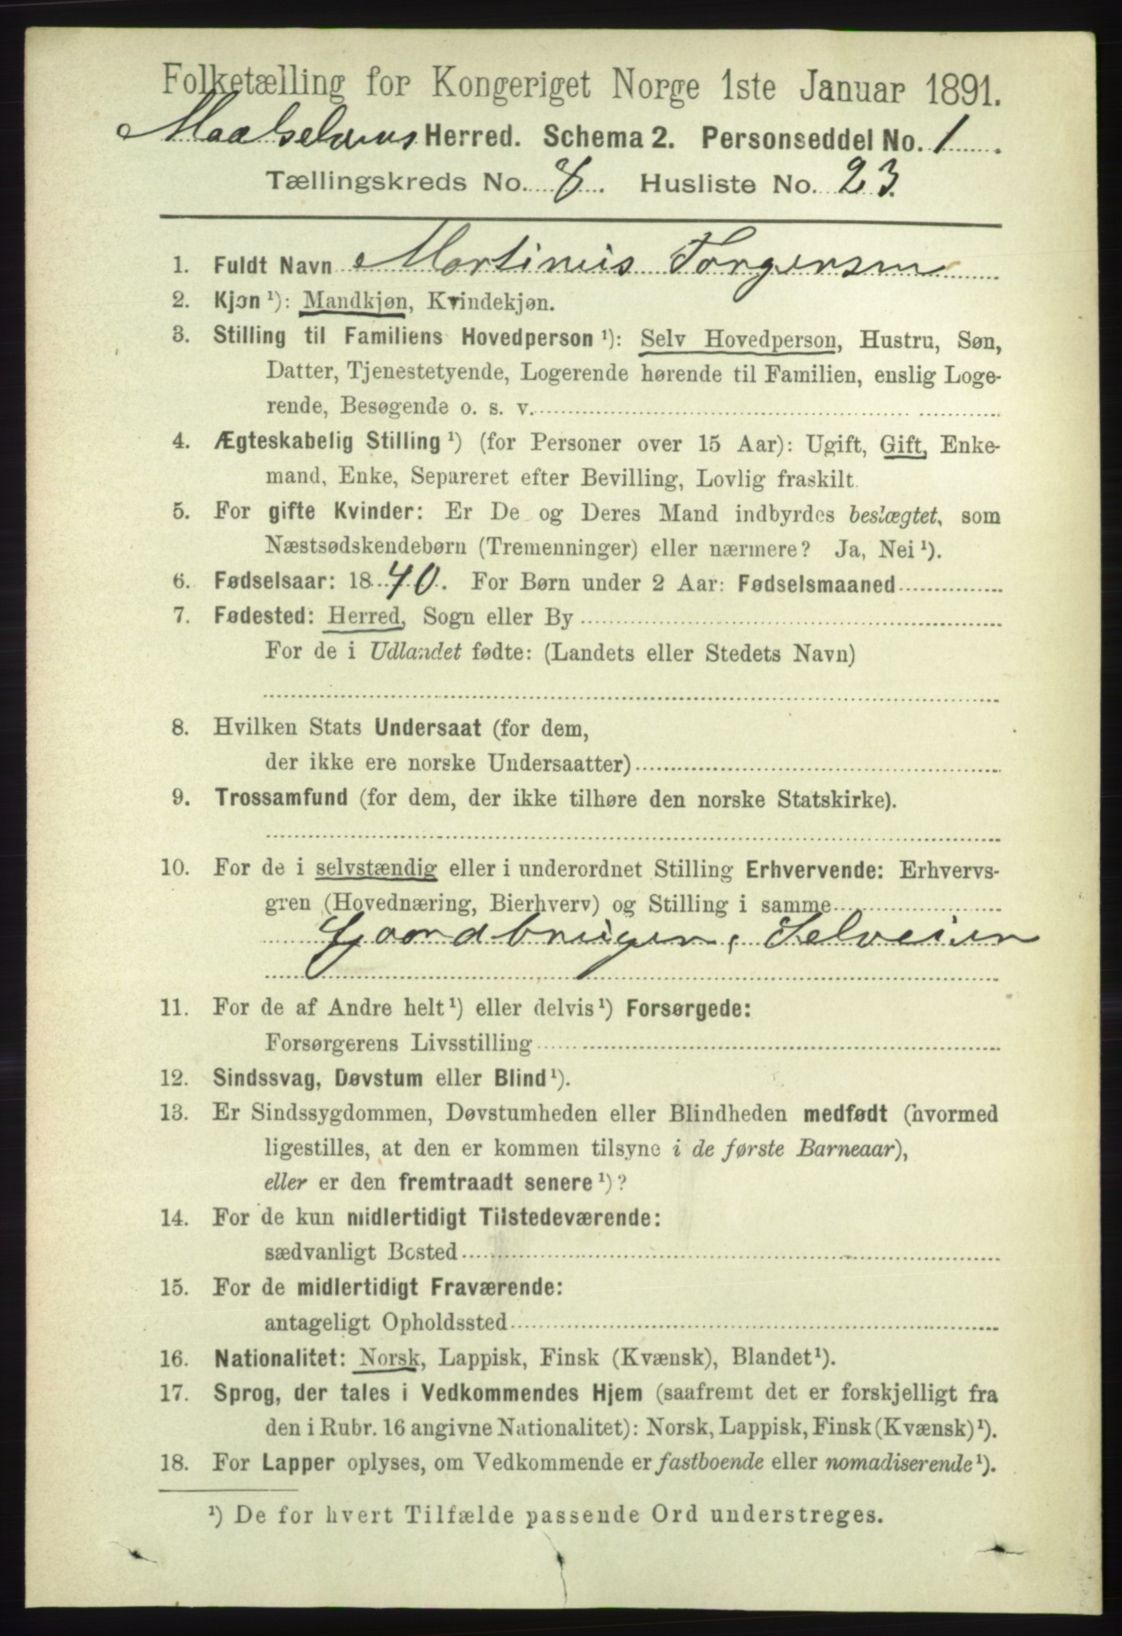 Folketælling for Kongeriget Norge 1ste Januar 1891.
Maalselvens Herred. Schema 2. Personseddel No. 1.
Tællingskreds No. 8. Husliste No. 23.
1. Fuldt Navn Martinus Torgersen
2. Kjøn ¹): Mandkjøn, Kvindekjøn.
3. Stilling til Familiens Hovedperson ¹): Selv Hovedperson, Hustru, Søn,
Datter, Tjenestetyende, Logerende hørende til Familien, enslig Loge-
rende, Besøgende o. s. v.
4. Ægteskabelig Stilling ¹) (for Personer over 15 Aar): Ugift, Gift, Enke-
mand, Enke, Separeret efter Bevilling, Lovlig fraskilt.
5. For gifte Kvinder: Er De og Deres Mand indbyrdes beslægtet, som
Næstsødskendebørn (Tremenninger) eller nærmere? Ja, Nei ¹).
6. Fødselsaar: 1840. For Børn under 2 Aar: Fødselsmaaned
7. Fødested: Herred, Sogn eller By
For de i Udlandet fødte: (Landets eller Stedets Navn)
8. Hvilken Stats Undersaat (for dem,
der ikke ere norske Undersaatter)
9. Trossamfund (for dem, der ikke tilhøre den norske Statskirke).
10. For de i selvstændig eller i underordnet Stilling Erhvervende: Erhvervs-
gren (Hovednæring, Bierhverv) og Stilling i samme
Gaardbruger, Selveier
11. For de af Andre helt ¹) eller delvis ¹) Forsørgede:
Forsørgerens Livsstilling
12. Sindssvag, Døvstum eller Blind ¹).
13. Er Sindssygdommen, Døvstumheden eller Blindheden medfødt (hvormed
ligestilles, at den er kommen tilsyne i de første Barneaar),
eller er den fremtraadt senere ¹)?
14. For de kun midlertidigt Tilstedeværende:
sædvanligt Bosted
15. For de midlertidigt Fraværende:
antageligt Opholdssted
16. Nationalitet: Norsk, Lappisk, Finsk (Kvænsk), Blandet ¹).
17. Sprog, der tales i Vedkommendes Hjem (saafremt det er forskjelligt fra
den i Rubr. 16 angivne Nationalitet): Norsk, Lappisk, Finsk (Kvænsk) ¹).
18. For Lapper oplyses, om Vedkommende er fastboende eller nomadiserende ¹).
¹) De for hvert Tilfælde passende Ord understreges.